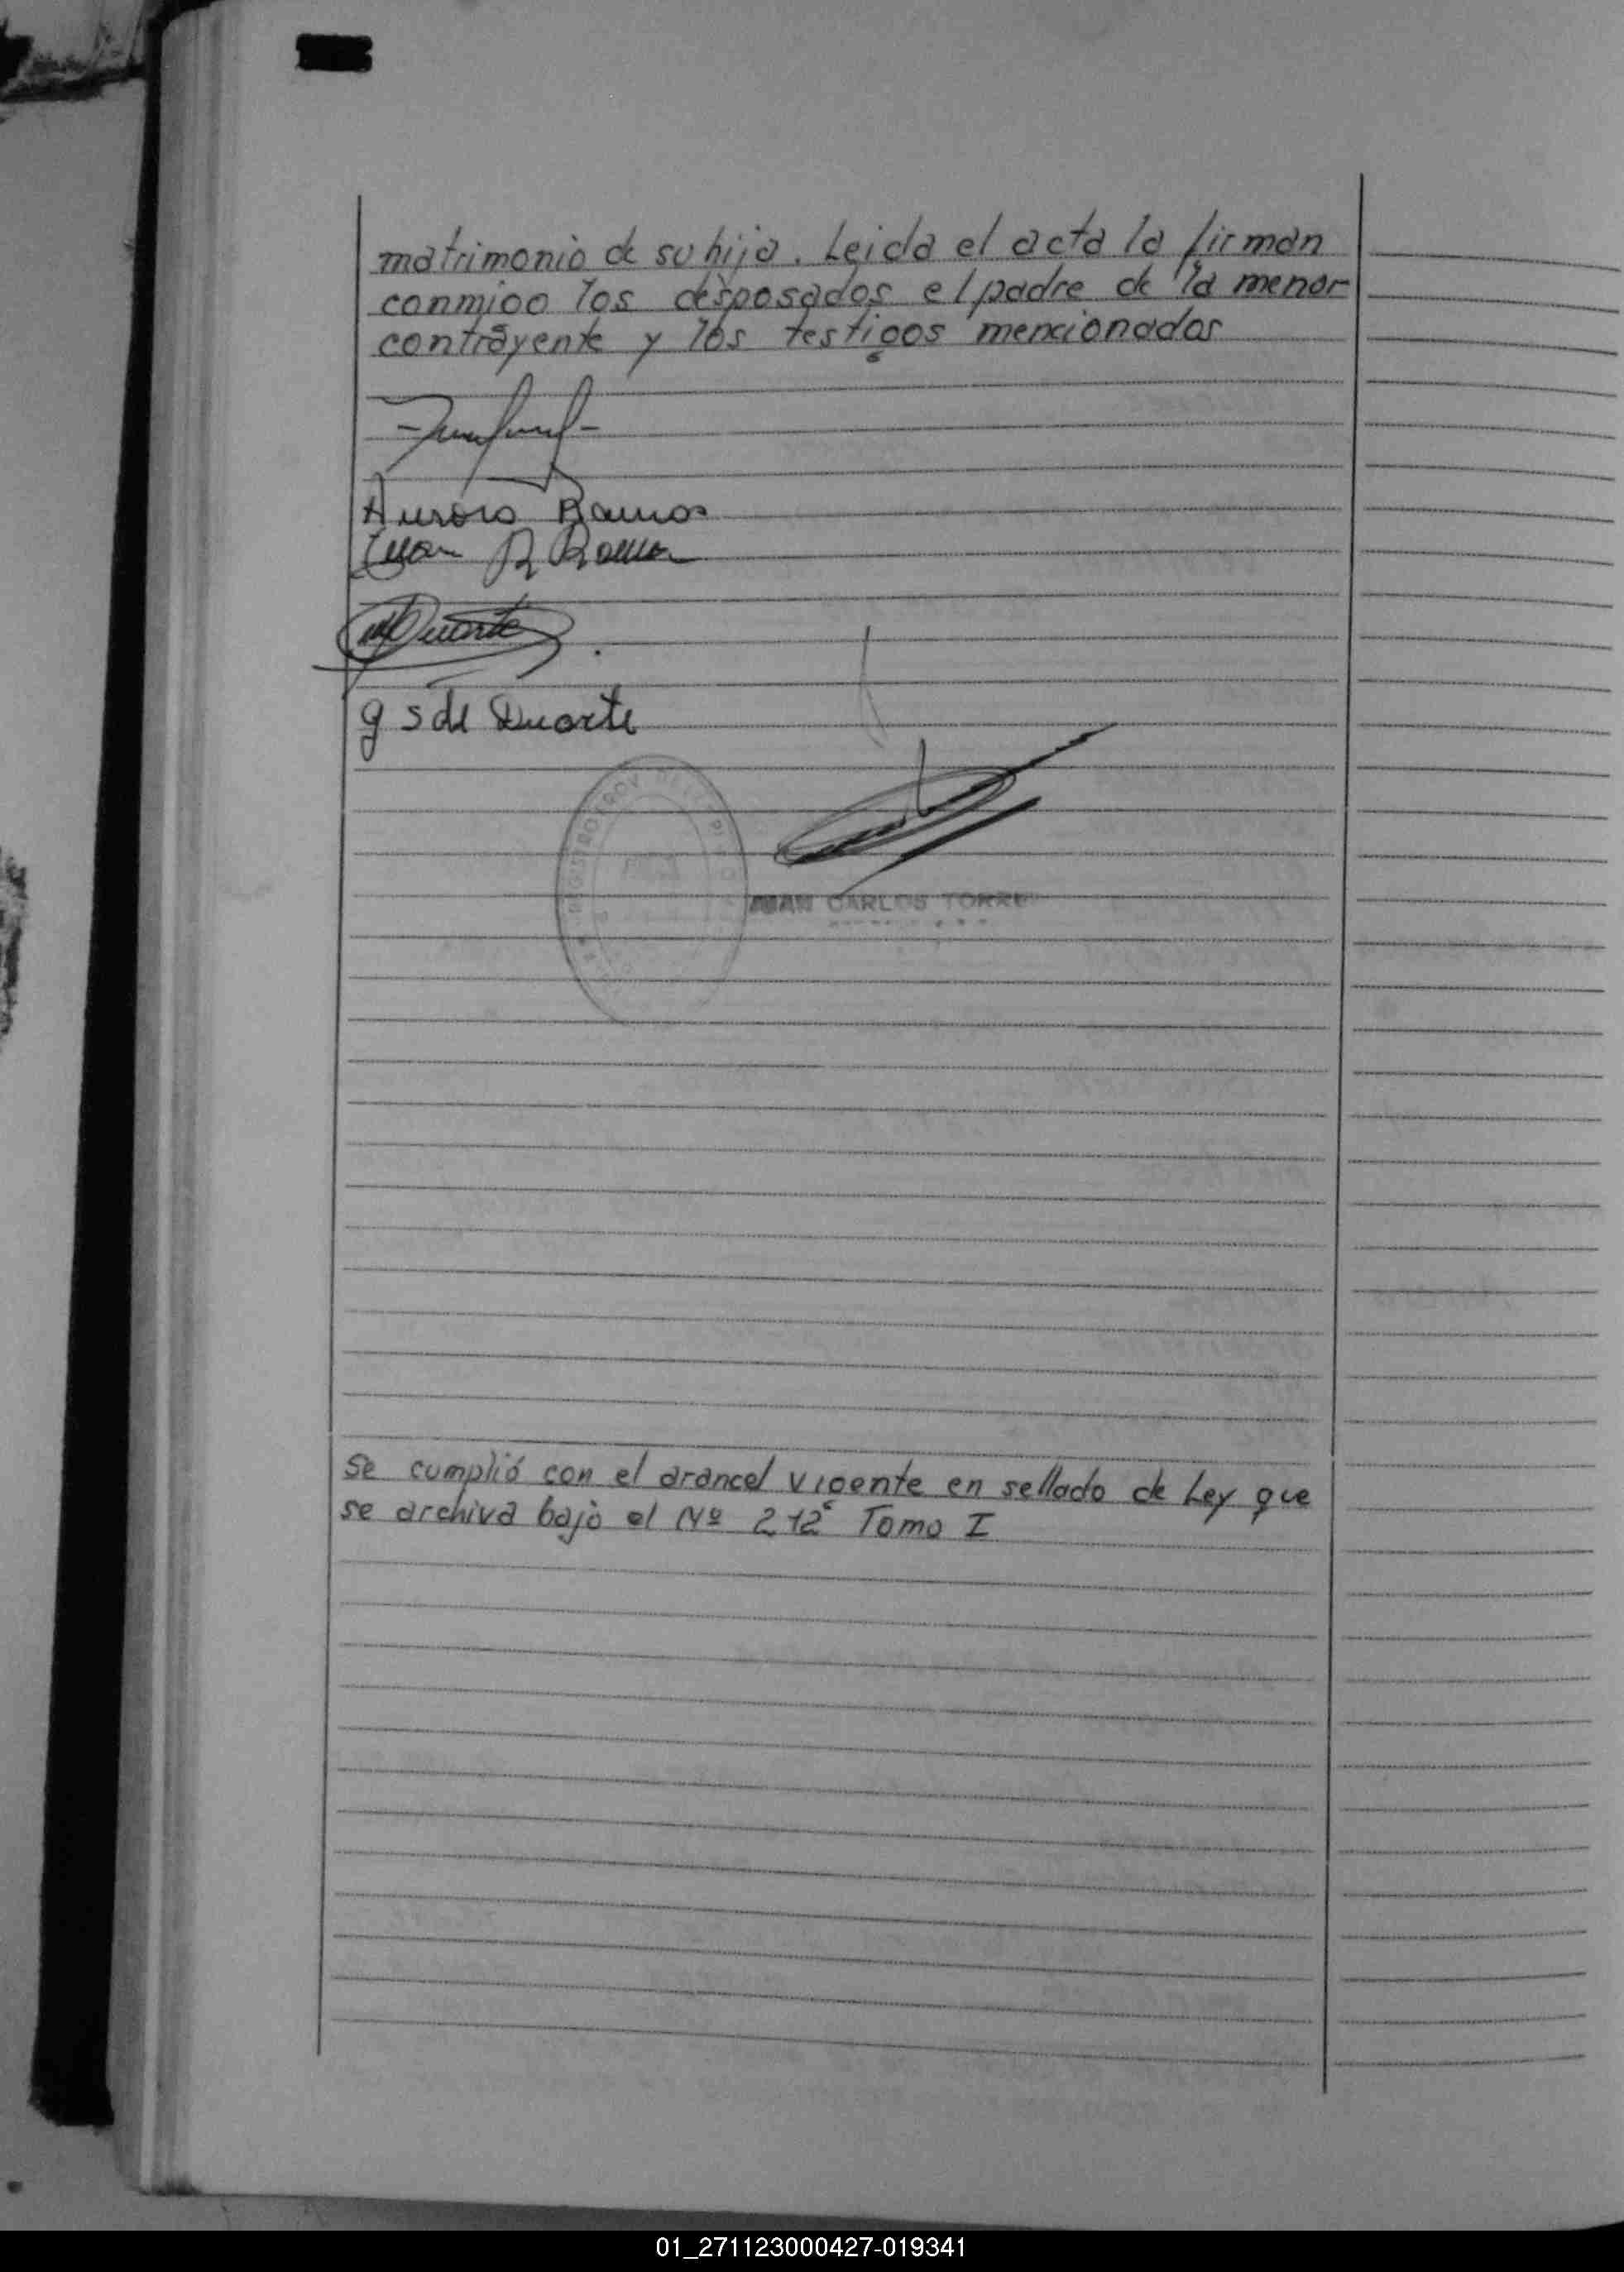 matrimonio de su hija. Leida el acta la firman
conmigo los desposados el padre de la menor
contrayente y los testigos mencionados
Aurora Ramos
Juan R Ramos
Duarte
g s de Duarte
JUAN CARLOS TORRE
Se cumplió con el arancel vigente en sellado de Ley que
se archiva bajo el Nº 212 Tomo I
01_271123000427-019341